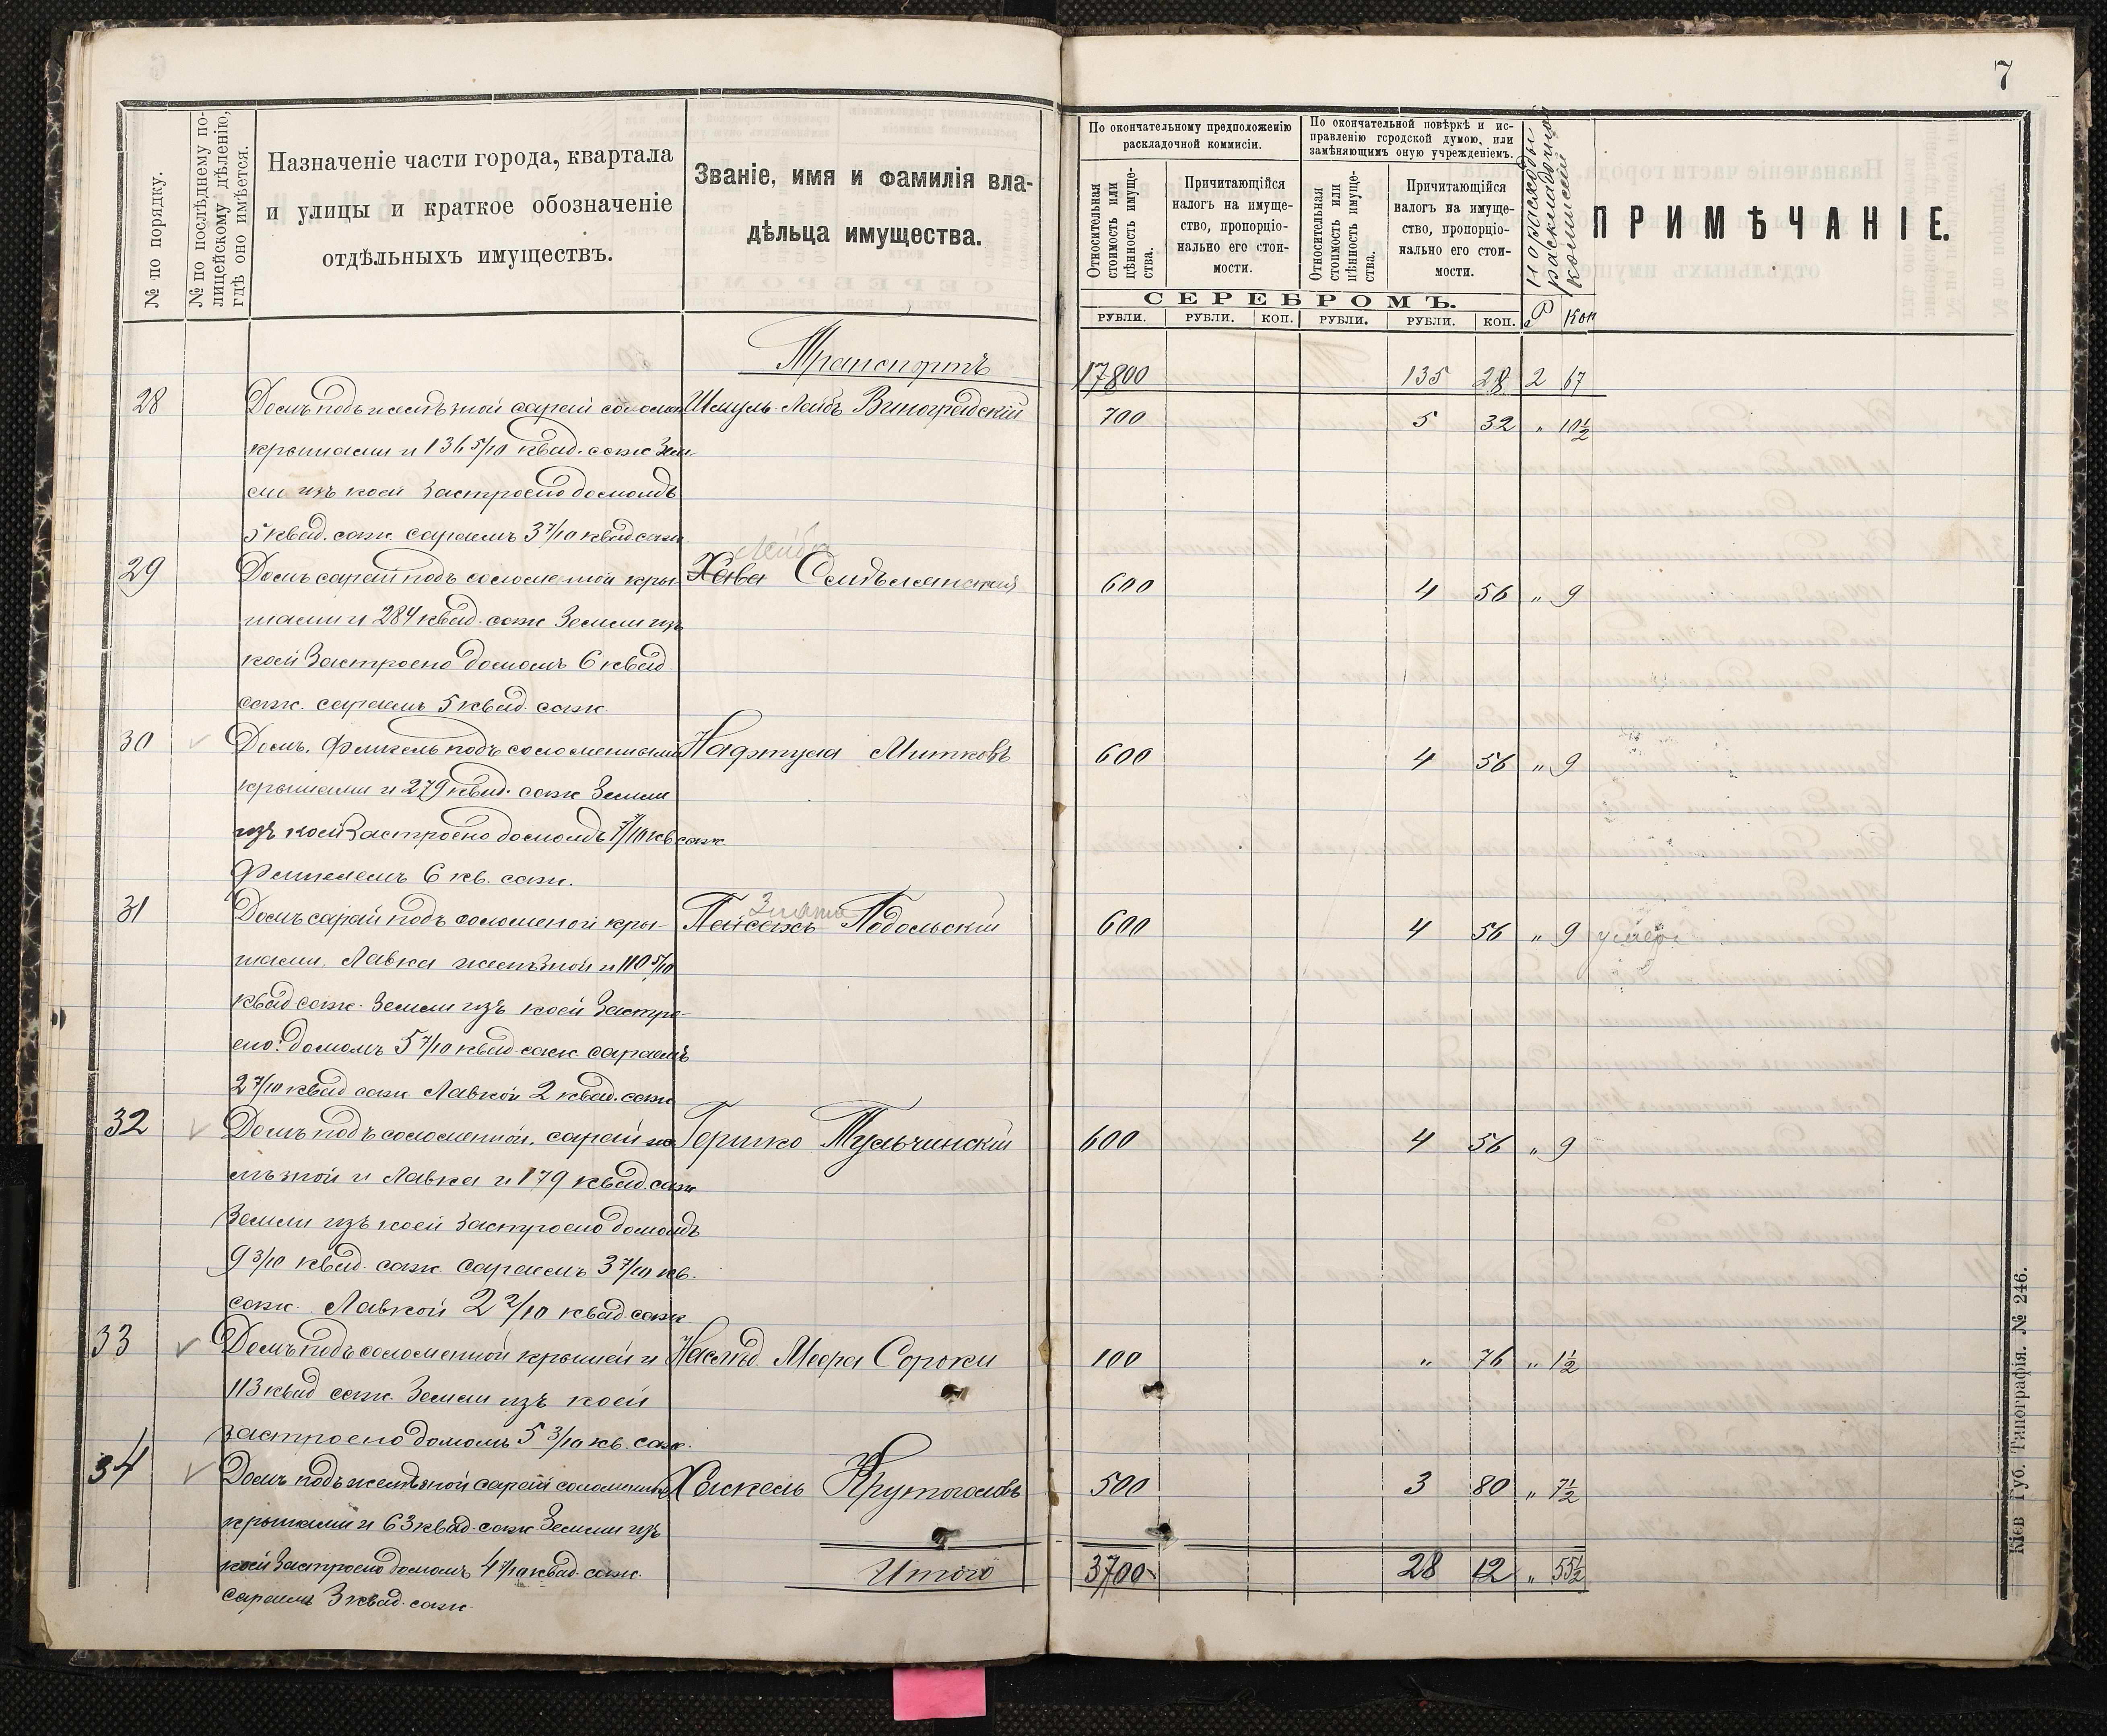 7
№ по порядку.
№ по послѣднему по-
лицейскому дѣленію,
гдѣ оно имѣется.
Назначеніе части города, квартала
и улицы и краткое обозначеніе
отдѣльныхъ имуществъ.
Званіе, имя и фамилія вла-
дѣльца имущества.
По окончательному предположенію
раскладочной коммисіи.
По окончательной повѣркѣ и ис-
правленію городской думою, или
замѣняющимъ оную учрежденіемъ.
Относительная
стоимость или
цѣнность имуще-
ства.
Причитающійся
налогъ на имуще-
ство, пропорціо-
нально его стои-
мости.
Относительная
стоимость или
цѣнность имуще-
ства.
Причитающійся
налогъ на имуще-
ство, пропорціо-
нально его стои-
мости.
на расходы
раскладочной
комисеіи
ПРИМѢЧАНІЕ.
СЕРЕБРОМЪ.
РУБЛИ. РУБЛИ. КОП. РУБЛИ. РУБЛИ. КОП. Р Коп
Транспортъ 17800 135 28 2 67
28 Домъ подъ желѣзной сарай солом Шмуль Лейбъ Виноградскій 700 5 32 " 10½
крышами и 136 5/10 квад. саж Зем
ли изъ коей Застроено домомъ
5 квад. саж. сараемъ 3 7/10 квад саж
Лейба
29 Домъ сарай подъ соломеной кры- Хава Смѣлянская 600 4 56 " 9
шами и 284 квад. саж Земли изъ
коей Застроено домомъ 6 квад
саж. сараемъ 5 квад. саж.
30 Домъ, флигель подъ соломенными Нафтула Митковъ 600 4 56 " 9
крышами и 279 квад. саж Земли
изъ коей Застроено домомъ 7/10 кв саж.
Флигелемъ 6 кв. саж.
Злата
31 Домъ сарай подъ соломеной кры- Пейсахъ Подольскій 600 4 56 " 9 умер.
шами. Лавка желѣзной и 110 5/10
квад саж. Земли изъ коей Застро-
ено: домомъ 5 7/10 квад саж сараемъ
2 7/10 квад саж Лавкой 2 квад. саж
32 Домъ подъ соломенной, сарай же Гершко Тульчинскій 600 4 56 " 9
лѣзной и Лавка и 179 квад. саж
Земли изъ коей Застроено домомъ
9 3/10 квад. саж. Сараемъ 3 7/10 кв.
саж. Лавкой 2 2/10 квад. саж
33 Домъ подъ соломенной крышей и Наслѣд. Меера Сороки 100 " 76 " 1½
113 квад саж. Земли изъ коей
застроено домомъ 5 3/10 кв. саж.
34 Домъ подъ желѣзной сарай соломенн Хаскель Крутоголовъ 500 3 80 " 7½
крышами и 63 квад. саж Земли изъ
коей Застроено домомъ 4 7/10 квад. саж.
Сараемъ 3 квад. саж.
Итого 3700 28 12 " 55½
Кіев Губ. Типографія. № 246.